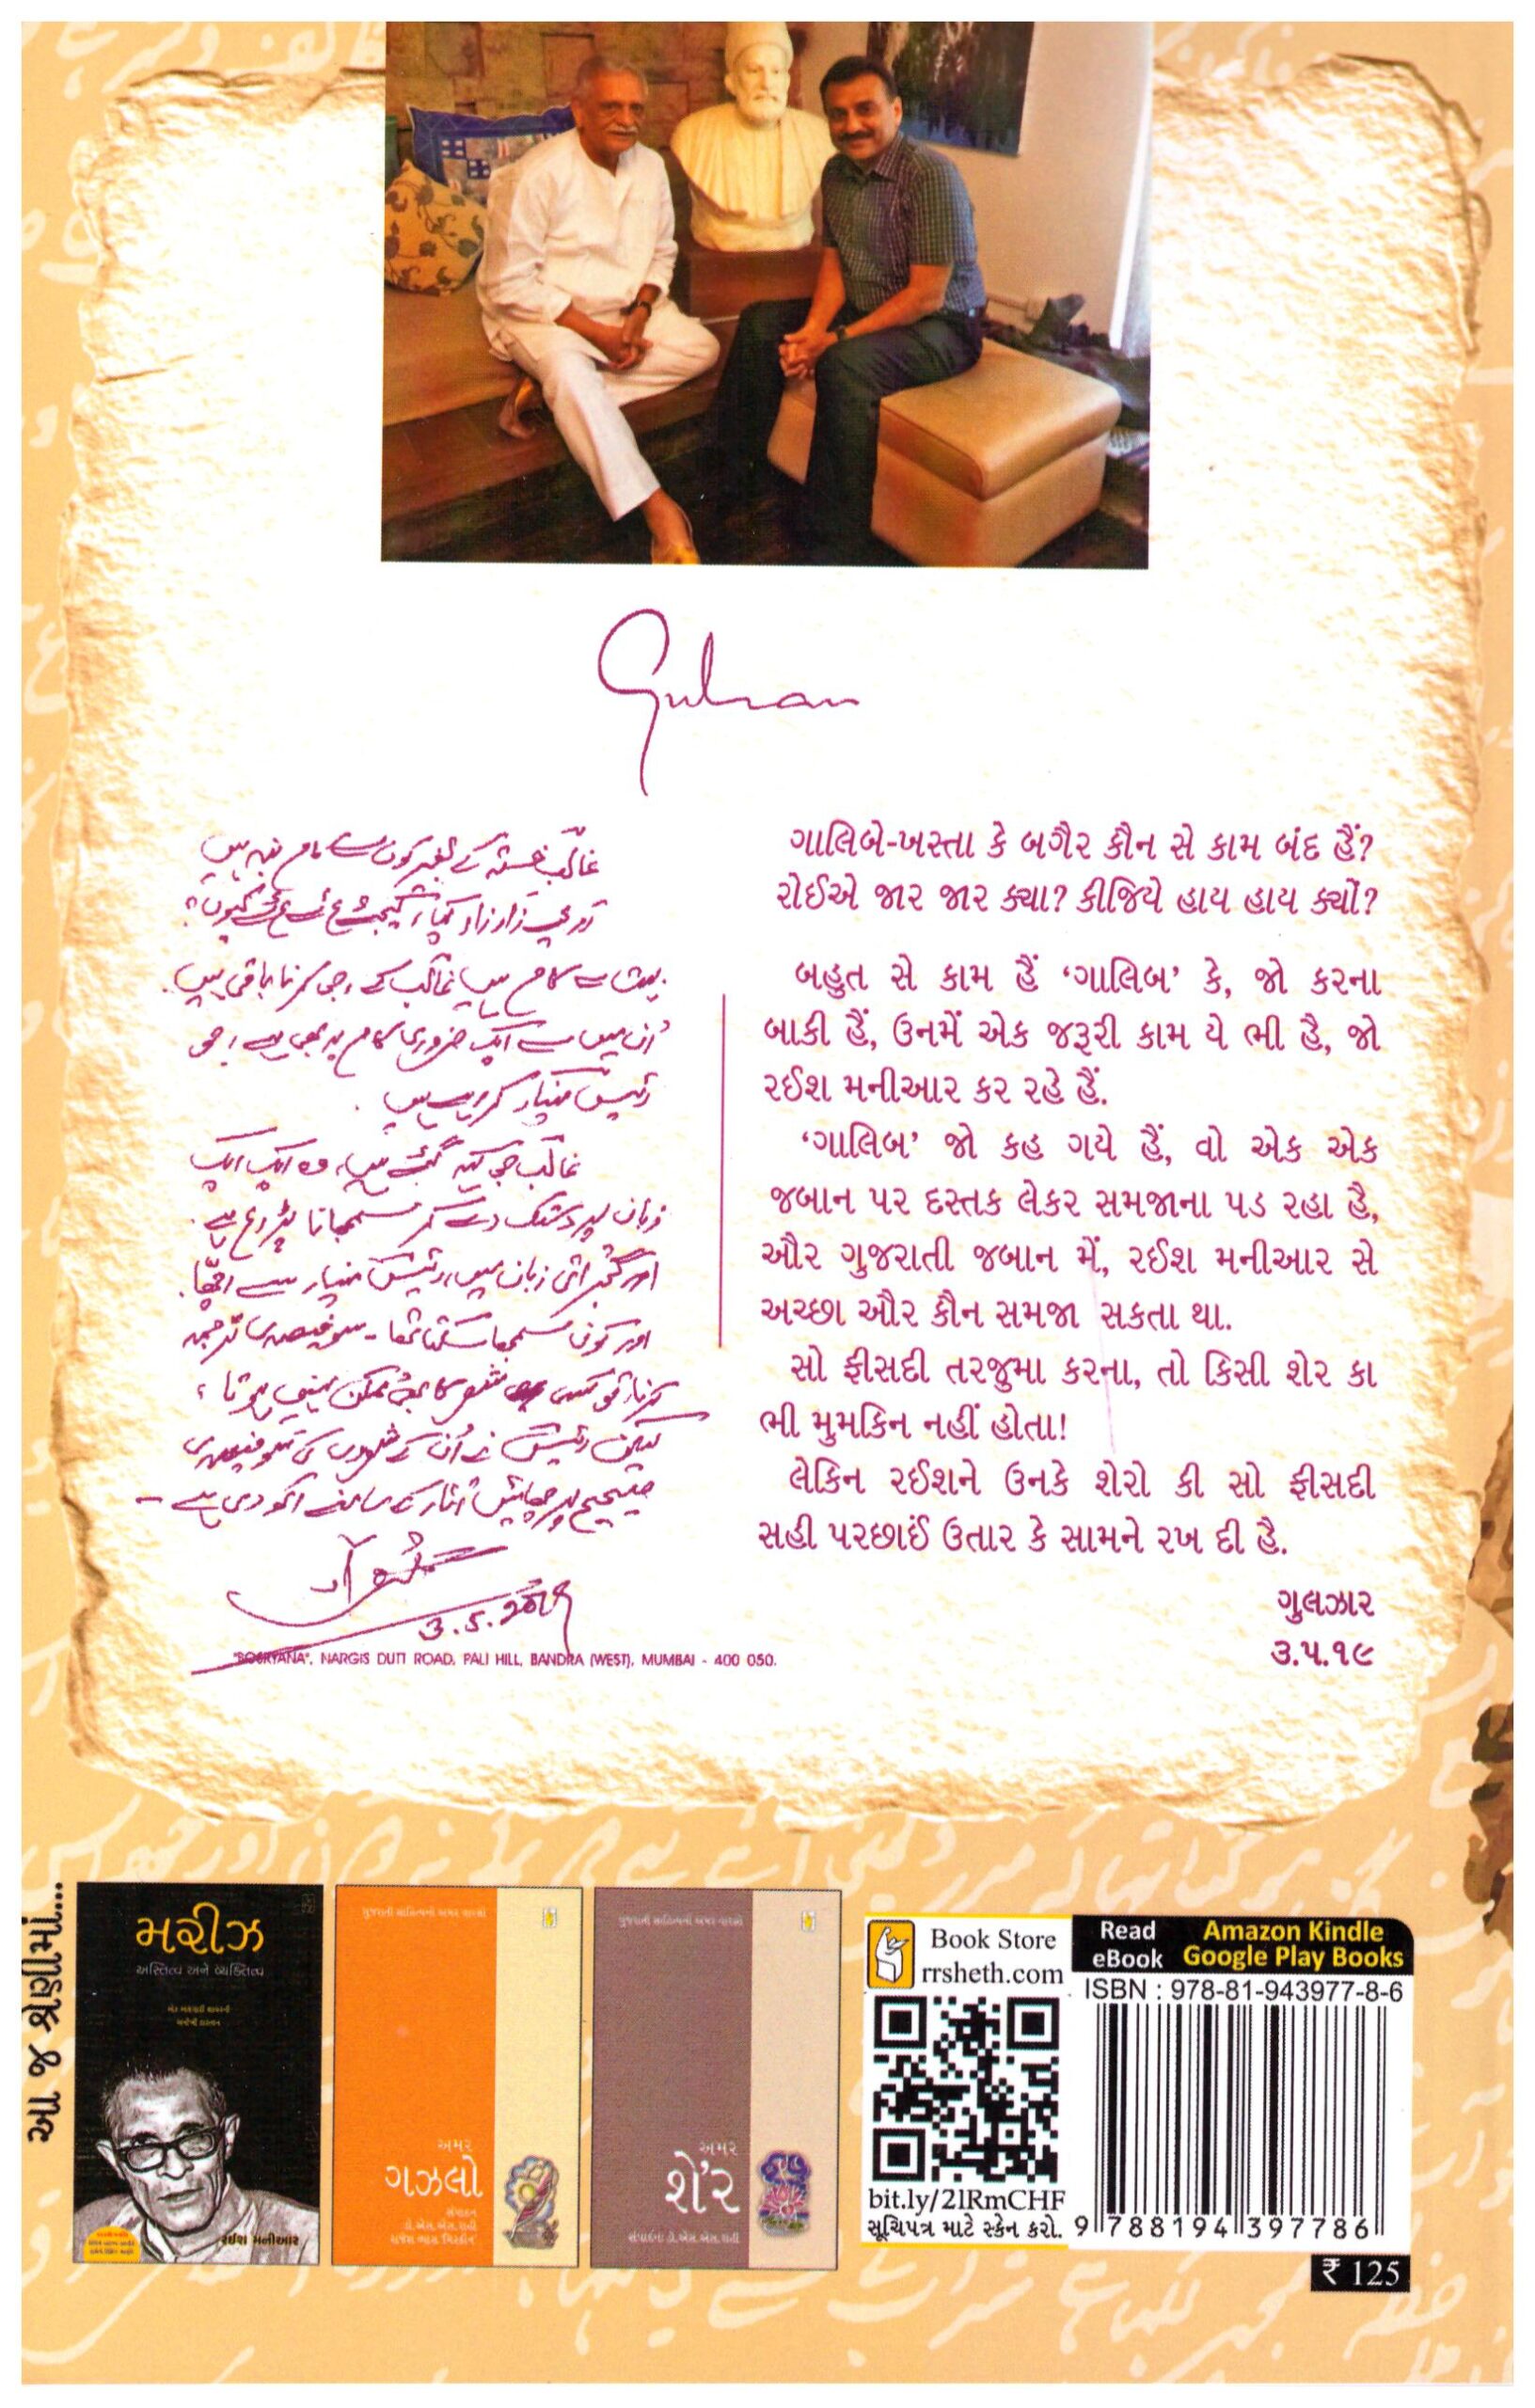 Gulzar
غالبِ خستہ کے بغیر کون سے کام بند ہیں
روئیے زار زار کیا، کیجئے ہائے ہائے کیوں؟
بہت سے کام ہیں غالب کے، جو کرنا باقی ہیں.
اُن میں سے ایک ضروری کام یہ بھی ہے، جو
رئیس منیار کر رہے ہیں.
غالب جو کہہ گئے ہیں، وہ ایک ایک
زبان پر دستک دے کر سمجھانا پڑ رہا ہے.
اور گجراتی زبان میں، رئیس منیار سے اچھا.
اور کون سمجھا سکتا تھا - سو فیصدی ترجمہ
کرنا، تو کسی شعر کا بھی ممکن نہیں ہوتا،
لیکن رئیس نے اُن کے شعروں کی سو فیصدی
اُتار کے سامنے رکھ دی ہے -
3.5.2019
"BOSKYANA", NARGIS DUTT ROAD, PALI HILL, BANDRA (WEST), MUMBAI - 400 050.
ગાલિબે-ખસ્તા કે બગૈર કૌન સે કામ બંદ હૈં?
રોઈએ જાર જાર ક્યા? કીજિયે હાય હાય ક્યોં?
બહુત સે કામ હૈં ‘ગાલિબ’ કે, જો કરના
બાકી હૈં, ઉનમેં એક જરૂરી કામ યે ભી હૈ, જો
રઈશ મનીઆર કર રહે હૈં.
‘ગાલિબ’ જો કહ ગયે હૈં, વો એક એક
જબાન પર દસ્તક લેકર સમજાના પડ રહા હૈ,
ઔર ગુજરાતી જબાન મેં, રઈશ મનીઆર સે
અચ્છા ઔર કૌન સમજા સકતા થા.
સો ફીસદી તરજુમા કરના, તો કિસી શેર કા
ભી મુમકિન નહીં હોતા!
લેકિન રઈશને ઉનકે શેરો કી સો ફીસદી
સહી પરછાઈં ઉતાર કે સામને રખ દી હૈ.
ગુલઝાર
૩.૫.૧૯
આ જ શ્રેણીમાં....
મરીઝ
અસ્તિત્વ અને વ્યક્તિત્વ
રઈશ મનીઆર
ગુજરાતી સાહિત્યનો અમર વારસો
અમર
ગઝલો
સંપાદન
ડૉ.એસ.એસ.રાહી
ગુજરાતી સાહિત્યનો અમર વારસો
અમર
શે'ર
સંપાદન: ડૉ.એસ.એસ.રાહી
Book Store
rrsheth.com
bit.ly/2lRmCHF
સૂચિપત્ર માટે સ્કેન કરો.
Read eBook
Amazon Kindle
Google Play Books
ISBN : 978-81-943977-8-6
9 788194 397786
₹ 125